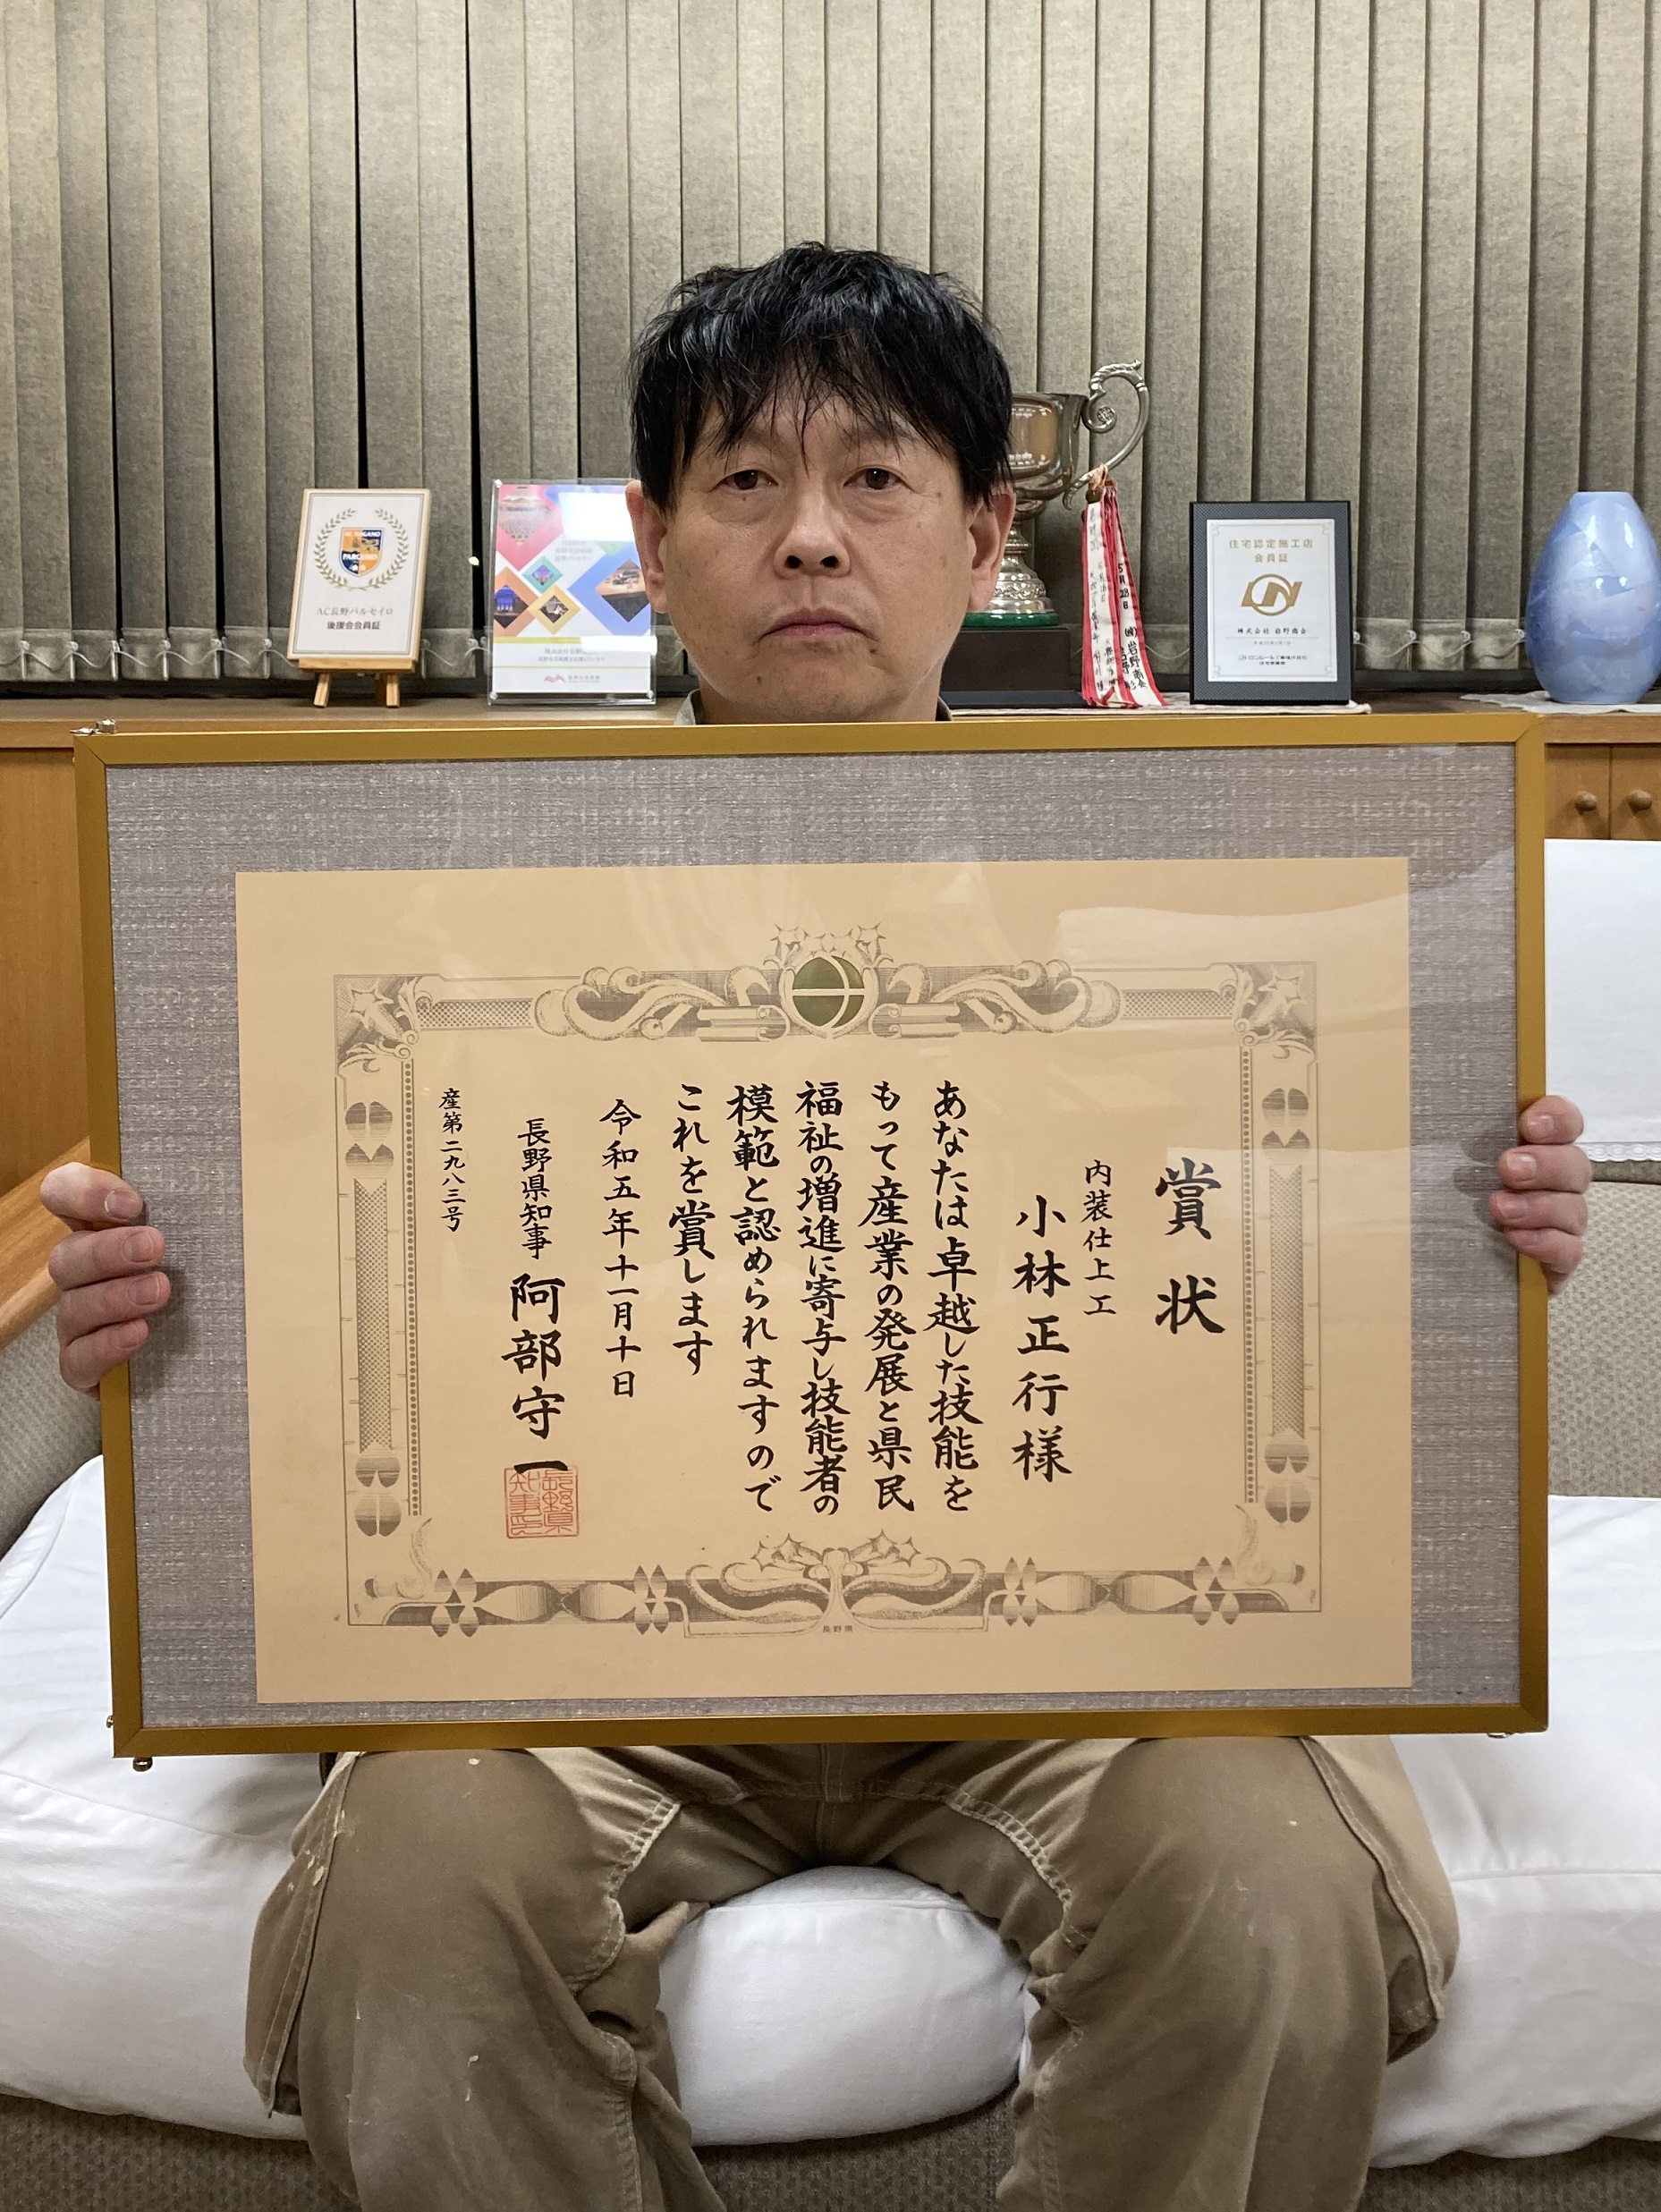 賞状
内装仕上工
小林正行様
あなたは卓越した技能を
もって産業の発展と県民
福祉の増進に寄与し技能者の
模範と認められますので
これを賞します
令和五年十一月十日
長野県知事 阿部守一
産第二九八三号
長野県
AC長野パルセイロ
後援会会員証
住宅認定施工店
会員証